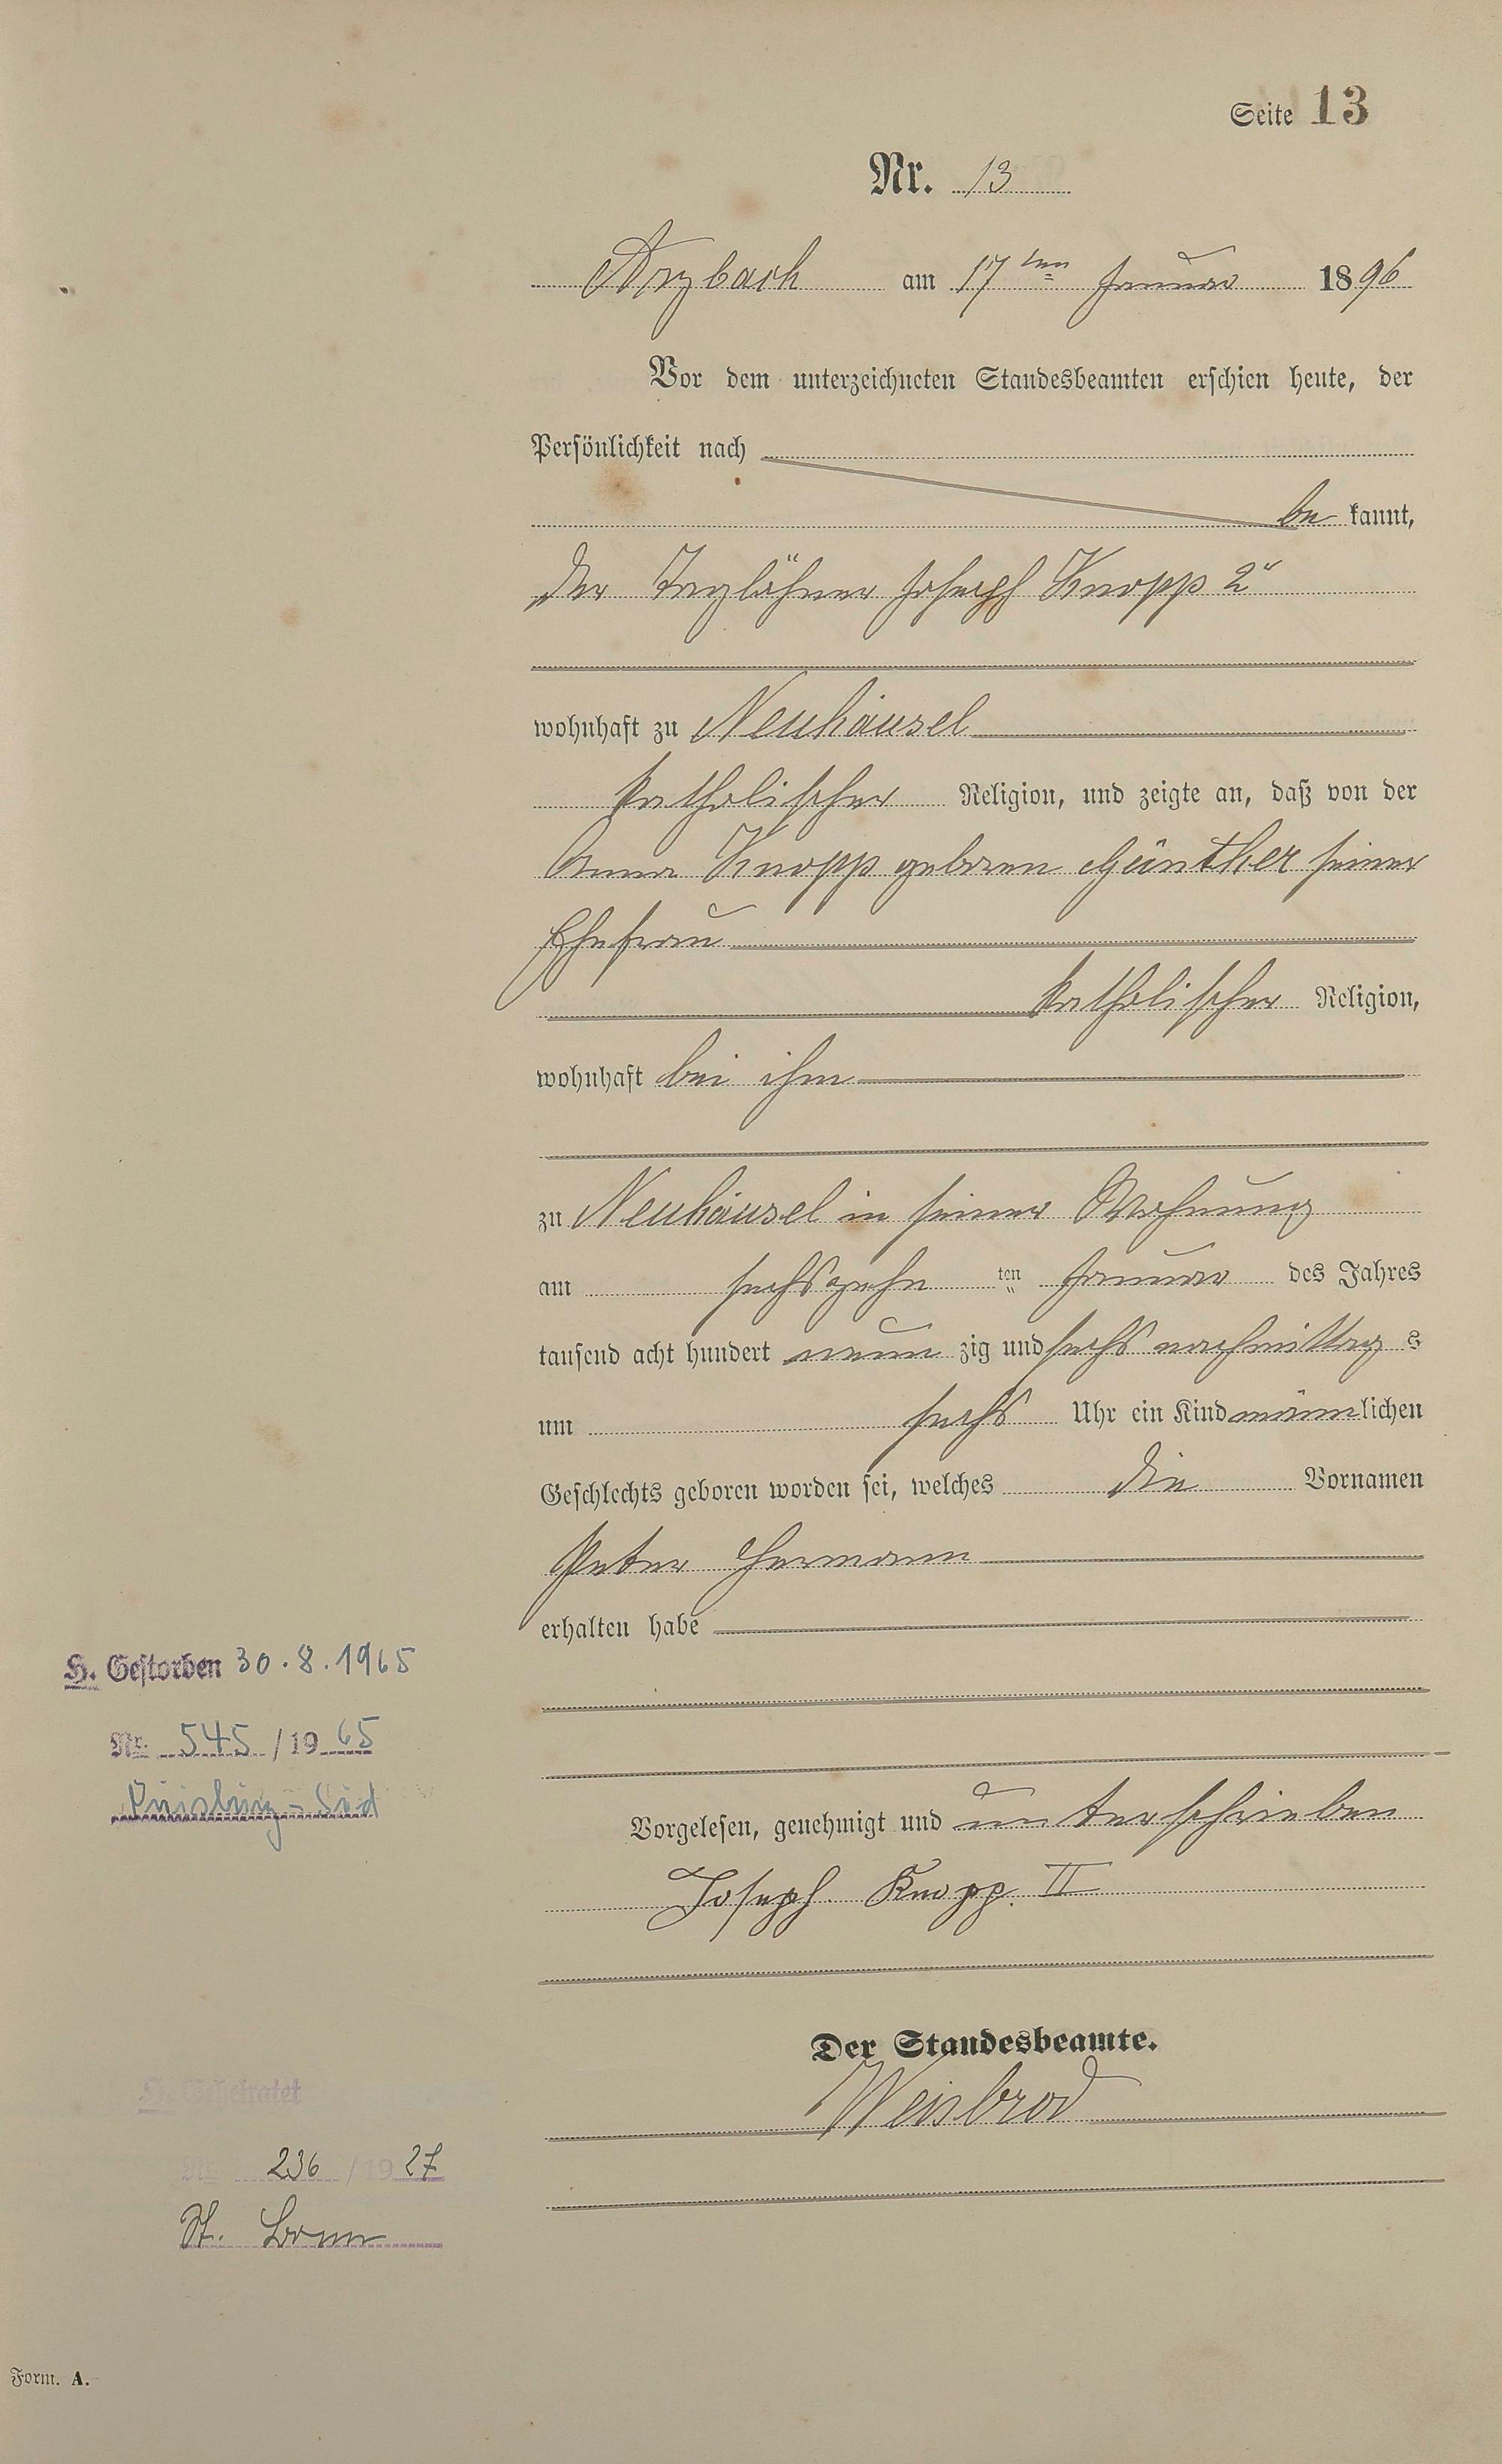 Seite 13
Nr. 13
Arzbach am 17ten Januar 1896
Vor dem unterzeichneten Standesbeamten erschien heute, der
Persönlichkeit nach
be kannt,
der Taglöhner Joseph Knopp 2r
wohnhaft zu Neuhäusel
katholischer Religion, und zeigte an, daß von der
Anna Knopp geboren Günther seiner
Ehefrau
katholischer Religion,
wohnhaft bei ihm
zu Neuhäusel in seiner Wohnung
am sechszehn ten Januar des Jahres
tausend acht hundert neun zig und sechs nachmittag s
um sechs Uhr ein Kind männlichen
Geschlechts geboren worden sei, welches die Vornamen
Peter Hermann
erhalten habe
H. Gestorben 30.8.1965
Nr. 545/1965
Duisburg-Süd
Vorgelesen, genehmigt und unterschrieben
Joseph Knopp. II
Der Standesbeamte.
Weisbrod
H. Geheiratet
Nr. 236/1927
St. Bonn
Form. A.